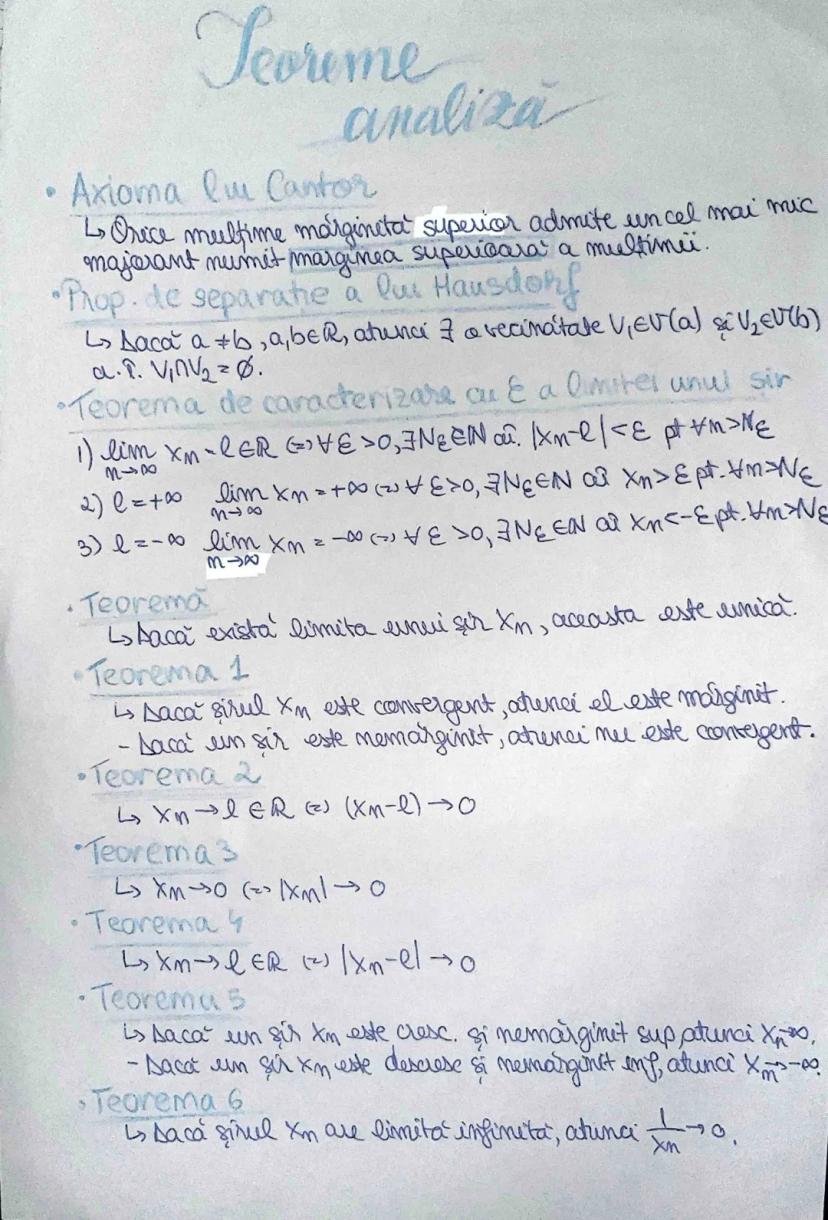 Teoreme
analiză
• Axioma lui Cantor
↳ Orice mulțime mărginită superior admite un cel mai mic
majorant numit marginea superioară a mulțimii.
• Prop. de separație a lui Hausdorf
↳ Dacă a ≠ b, a,b∈ℝ, atunci ∃ o vecinătate V₁∈V(a) și V₂∈V(b)
a.î. V₁∩V₂ = ∅.
• Teorema de caracterizare cu ε a limitei unui șir
1) lim xₙ = l∈ℝ (=) ∀ε>0, ∃Nε∈ℕ aî. |xₙ-l|<ε pt ∀n>Nε
n→∞
2) l=+∞ lim xₙ = +∞ (=) ∀ε>0, ∃Nε∈ℕ aî xₙ>ε pt. ∀n>Nε
n→∞
3) l=-∞ lim xₙ = -∞ (=) ∀ε>0, ∃Nε∈ℕ aî xₙ<-ε pt. ∀n>Nε
n→∞
• Teoremă
↳ Dacă există limita unui șir xₙ, aceasta este unică.
• Teorema 1
↳ Dacă șirul xₙ este convergent, atunci el este mărginit.
- Dacă un șir este nemărginit, atunci nu este convergent.
• Teorema 2
↳ xₙ→l∈ℝ (=) (xₙ-l)→0
• Teorema 3
↳ xₙ→0 (=) |xₙ|→0
• Teorema 4
↳ xₙ→l∈ℝ (=) |xₙ-l|→0
• Teorema 5
↳ Dacă un șir xₙ este cresc. și nemărginit sup, atunci xₙ→∞.
- Dacă un șir xₙ este descresc și nemărginit inf, atunci xₙ→-∞.
• Teorema 6
↳ Dacă șirul xₙ are limită infinită, atunci 1/xₙ→0.